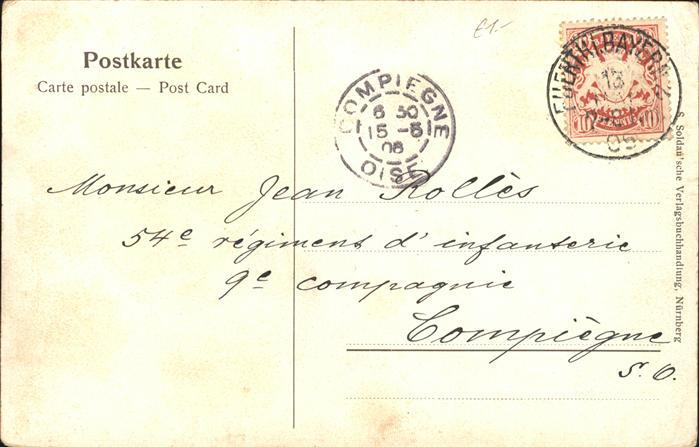 £1.-
Postkarte
Carte postale — Post Card
COMPIEGNE
6 30
15 -5
06
OISE
BAYERN
13
10 10
Monsieur Jean Rollès
54e régiment d'infanterie
9e compagnie
Compiègne
S. O.
S. Soldan'sche Verlagsbuchhandlung, Nürnberg